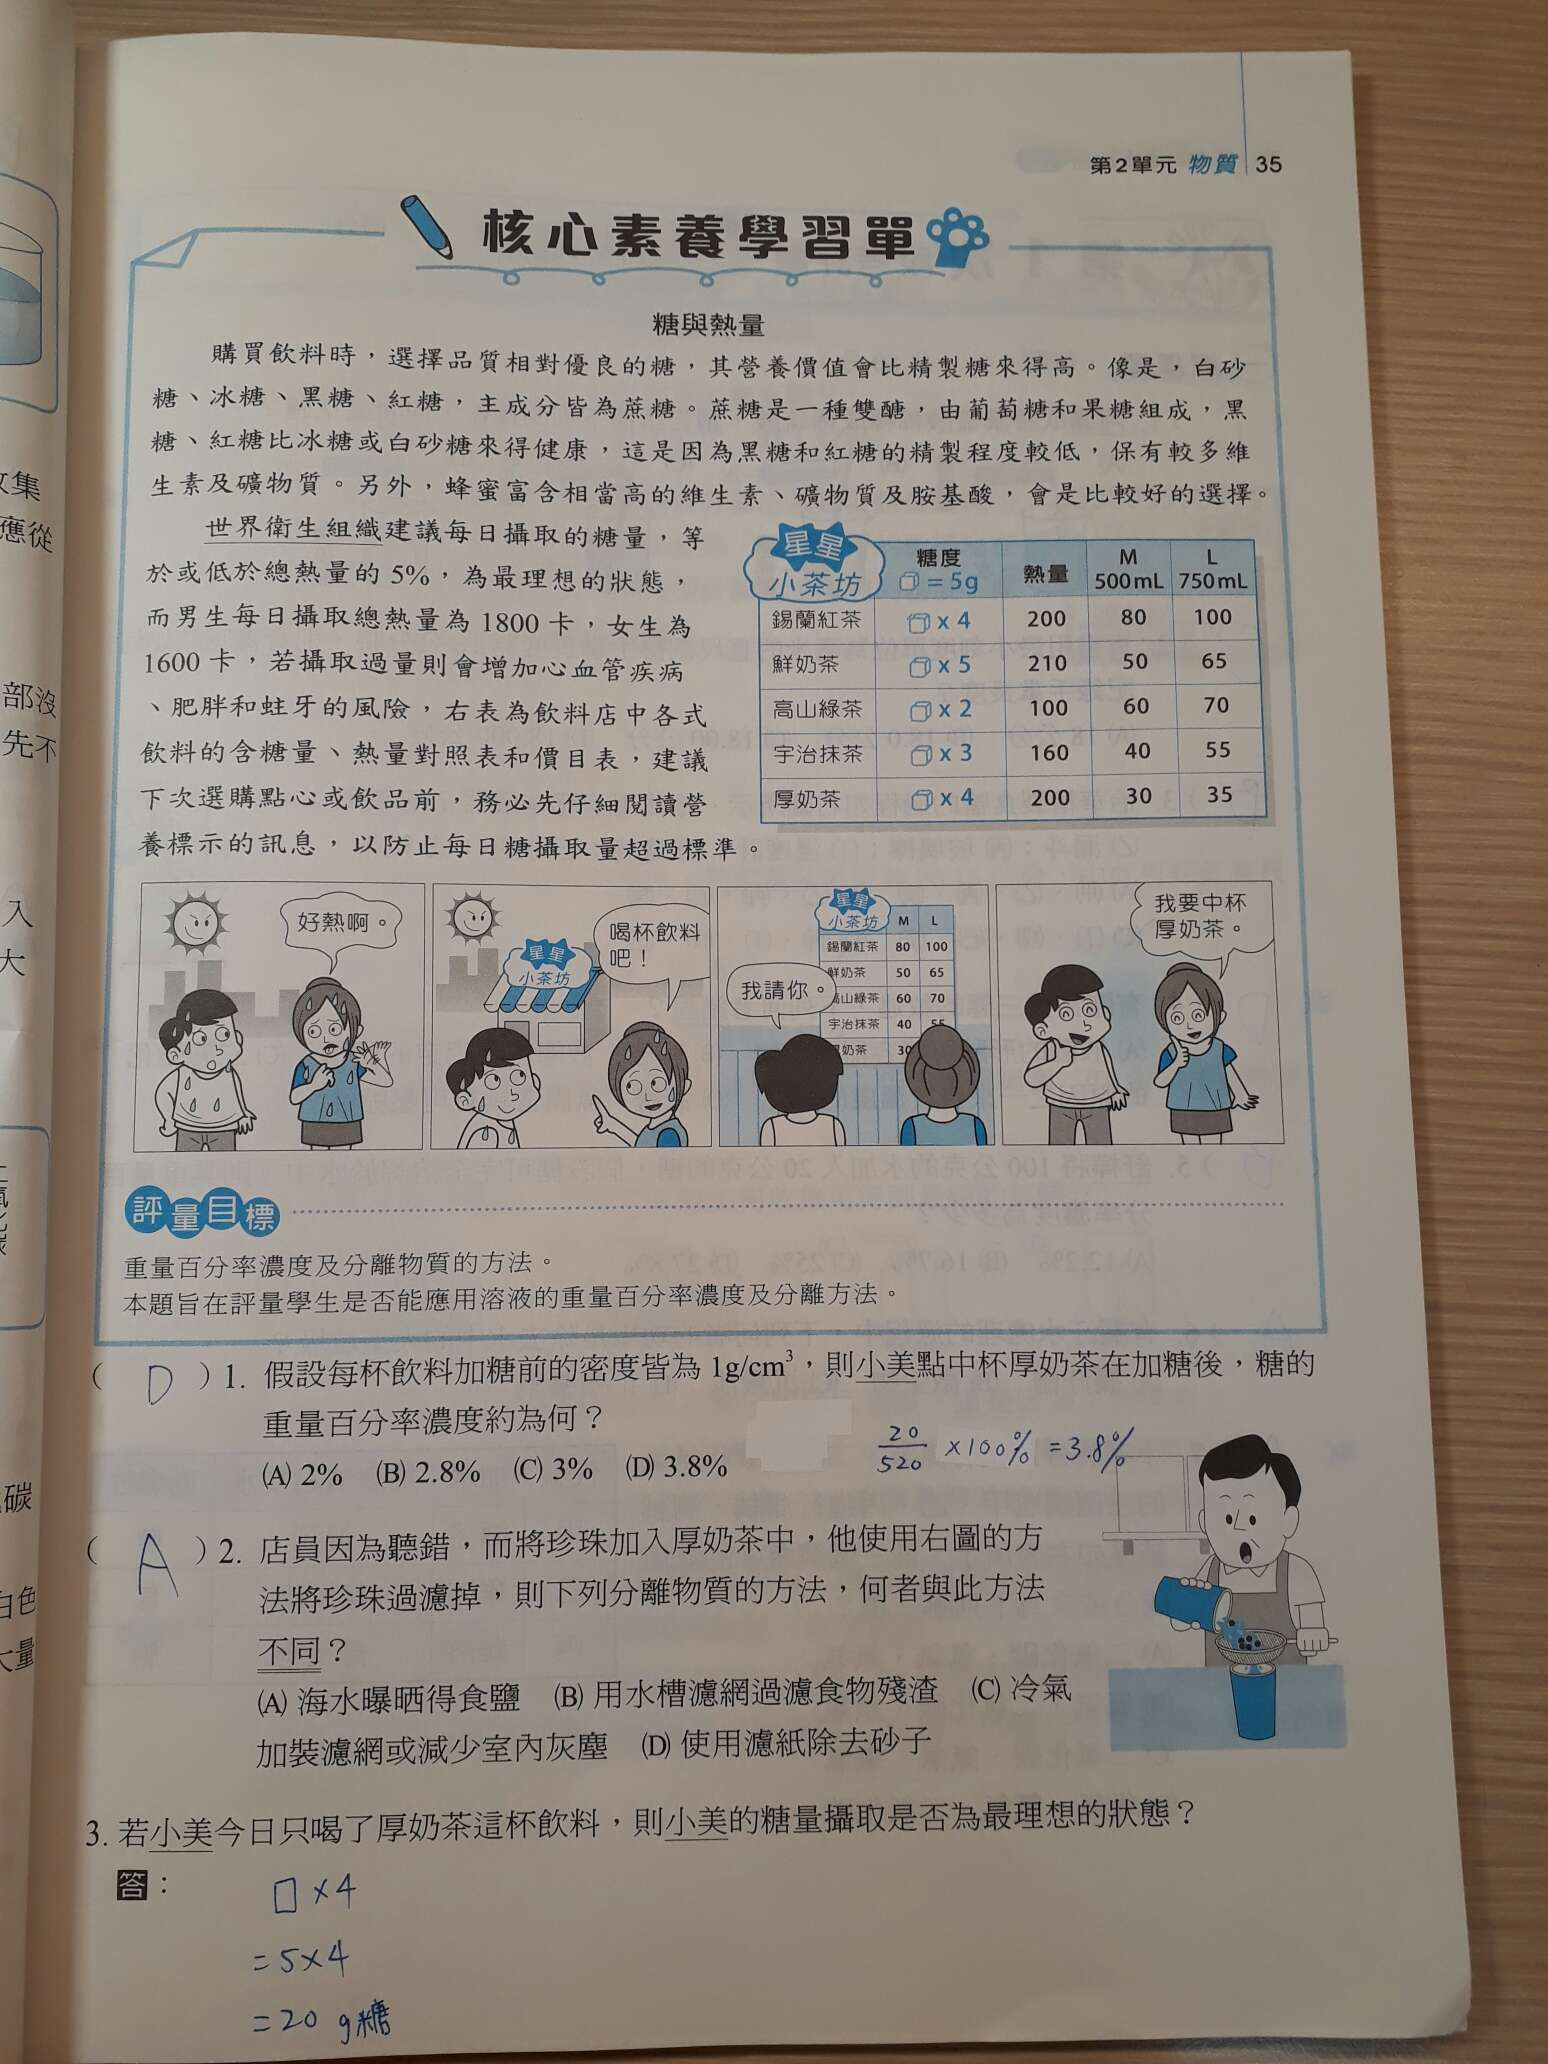 第2單元 物質 35
核心素養學習單
糖與熱量
購買飲料時，選擇品質相對優良的糖，其營養價值會比精製糖來得高。像是，白砂
糖、冰糖、黑糖、紅糖，主成分皆為蔗糖。蔗糖是一種雙醣，由葡萄糖和果糖組成，黑
糖、紅糖比冰糖或白砂糖來得健康，這是因為黑糖和紅糖的精製程度較低，保有較多維
生素及礦物質。另外，蜂蜜富含相當高的維生素、礦物質及胺基酸，會是比較好的選擇。
世界衛生組織建議每日攝取的糖量，等
於或低於總熱量的 5%，為最理想的狀態，
而男生每日攝取總熱量為 1800 卡，女生為
1600 卡，若攝取過量則會增加心血管疾病
、肥胖和蛀牙的風險，右表為飲料店中各式
飲料的含糖量、熱量對照表和價目表，建議
下次選購點心或飲品前，務必先仔細閱讀營
養標示的訊息，以防止每日糖攝取量超過標準。
星星
小茶坊
糖度 = 5g 熱量 M 500mL L 750mL
錫蘭紅茶 x 4 200 80 100
鮮奶茶 x 5 210 50 65
高山綠茶 x 2 100 60 70
宇治抹茶 x 3 160 40 55
厚奶茶 x 4 200 30 35
好熱啊。
星星
小茶坊
喝杯飲料
吧！
我請你。
星星
小茶坊 M L
錫蘭紅茶 80 100
鮮奶茶 50 65
高山綠茶 60 70
宇治抹茶 40 55
奶茶 30
我要中杯
厚奶茶。
評量目標
重量百分率濃度及分離物質的方法。
本題旨在評量學生是否能應用溶液的重量百分率濃度及分離方法。
（ D ）1. 假設每杯飲料加糖前的密度皆為 1g/cm³，則小美點中杯厚奶茶在加糖後，糖的
重量百分率濃度約為何？
(A) 2% (B) 2.8% (C) 3% (D) 3.8%
20/520 ×100% =3.8%
（ A ）2. 店員因為聽錯，而將珍珠加入厚奶茶中，他使用右圖的方
法將珍珠過濾掉，則下列分離物質的方法，何者與此方法
不同？
(A) 海水曝晒得食鹽 (B) 用水槽濾網過濾食物殘渣 (C) 冷氣
加裝濾網或減少室內灰塵 (D) 使用濾紙除去砂子
3. 若小美今日只喝了厚奶茶這杯飲料，則小美的糖量攝取是否為最理想的狀態？
答：
□ ×4
= 5×4
= 20 g糖
收集
應從
部沒
先不
入
大
碳
白色
大量